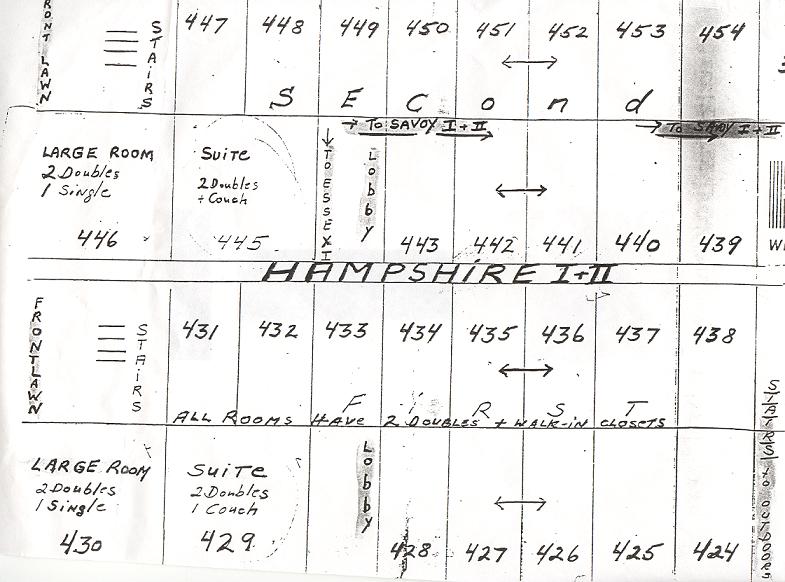 FRONT LAWN
STAIRS
447 448 449 450 451 452 453 454
SECond
→ To SAVOY I + II →
→ To SAVOY I + II
LARGE ROOM
2 Doubles
1 Single
446
Suite
2 Doubles
+ Couch
445
TO ESSEX I
Lobby
443 442 441 440 439
HAMPSHIRE I + II
FRONT LAWN
STAIRS
431 432 433 434 435 436 437 438
FiRST
ALL ROOMS HAVE 2 DOUBLES + WALK-IN CLOSETS
LARGE ROOM
2 Doubles
1 Single
430
Suite
2 Doubles
1 Couch
429
Lobby
428 427 426 425 424
STAIRS TO OUTDOORS